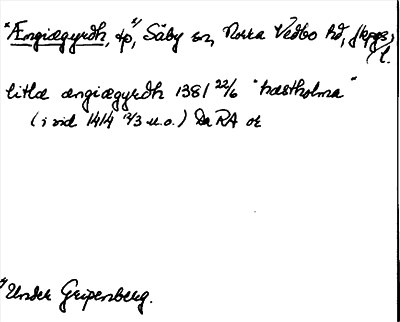 *Ængiægyrdh, tp, ¹⁾ Säby sn, Norra Vedbo hd, Jkpgs
l.
litlæ ængiægyrdh 1381 22/6 "hæstholma"
(i vid 1414 2/3 u.o.) Da RA or
¹⁾ Under Gripenberg.